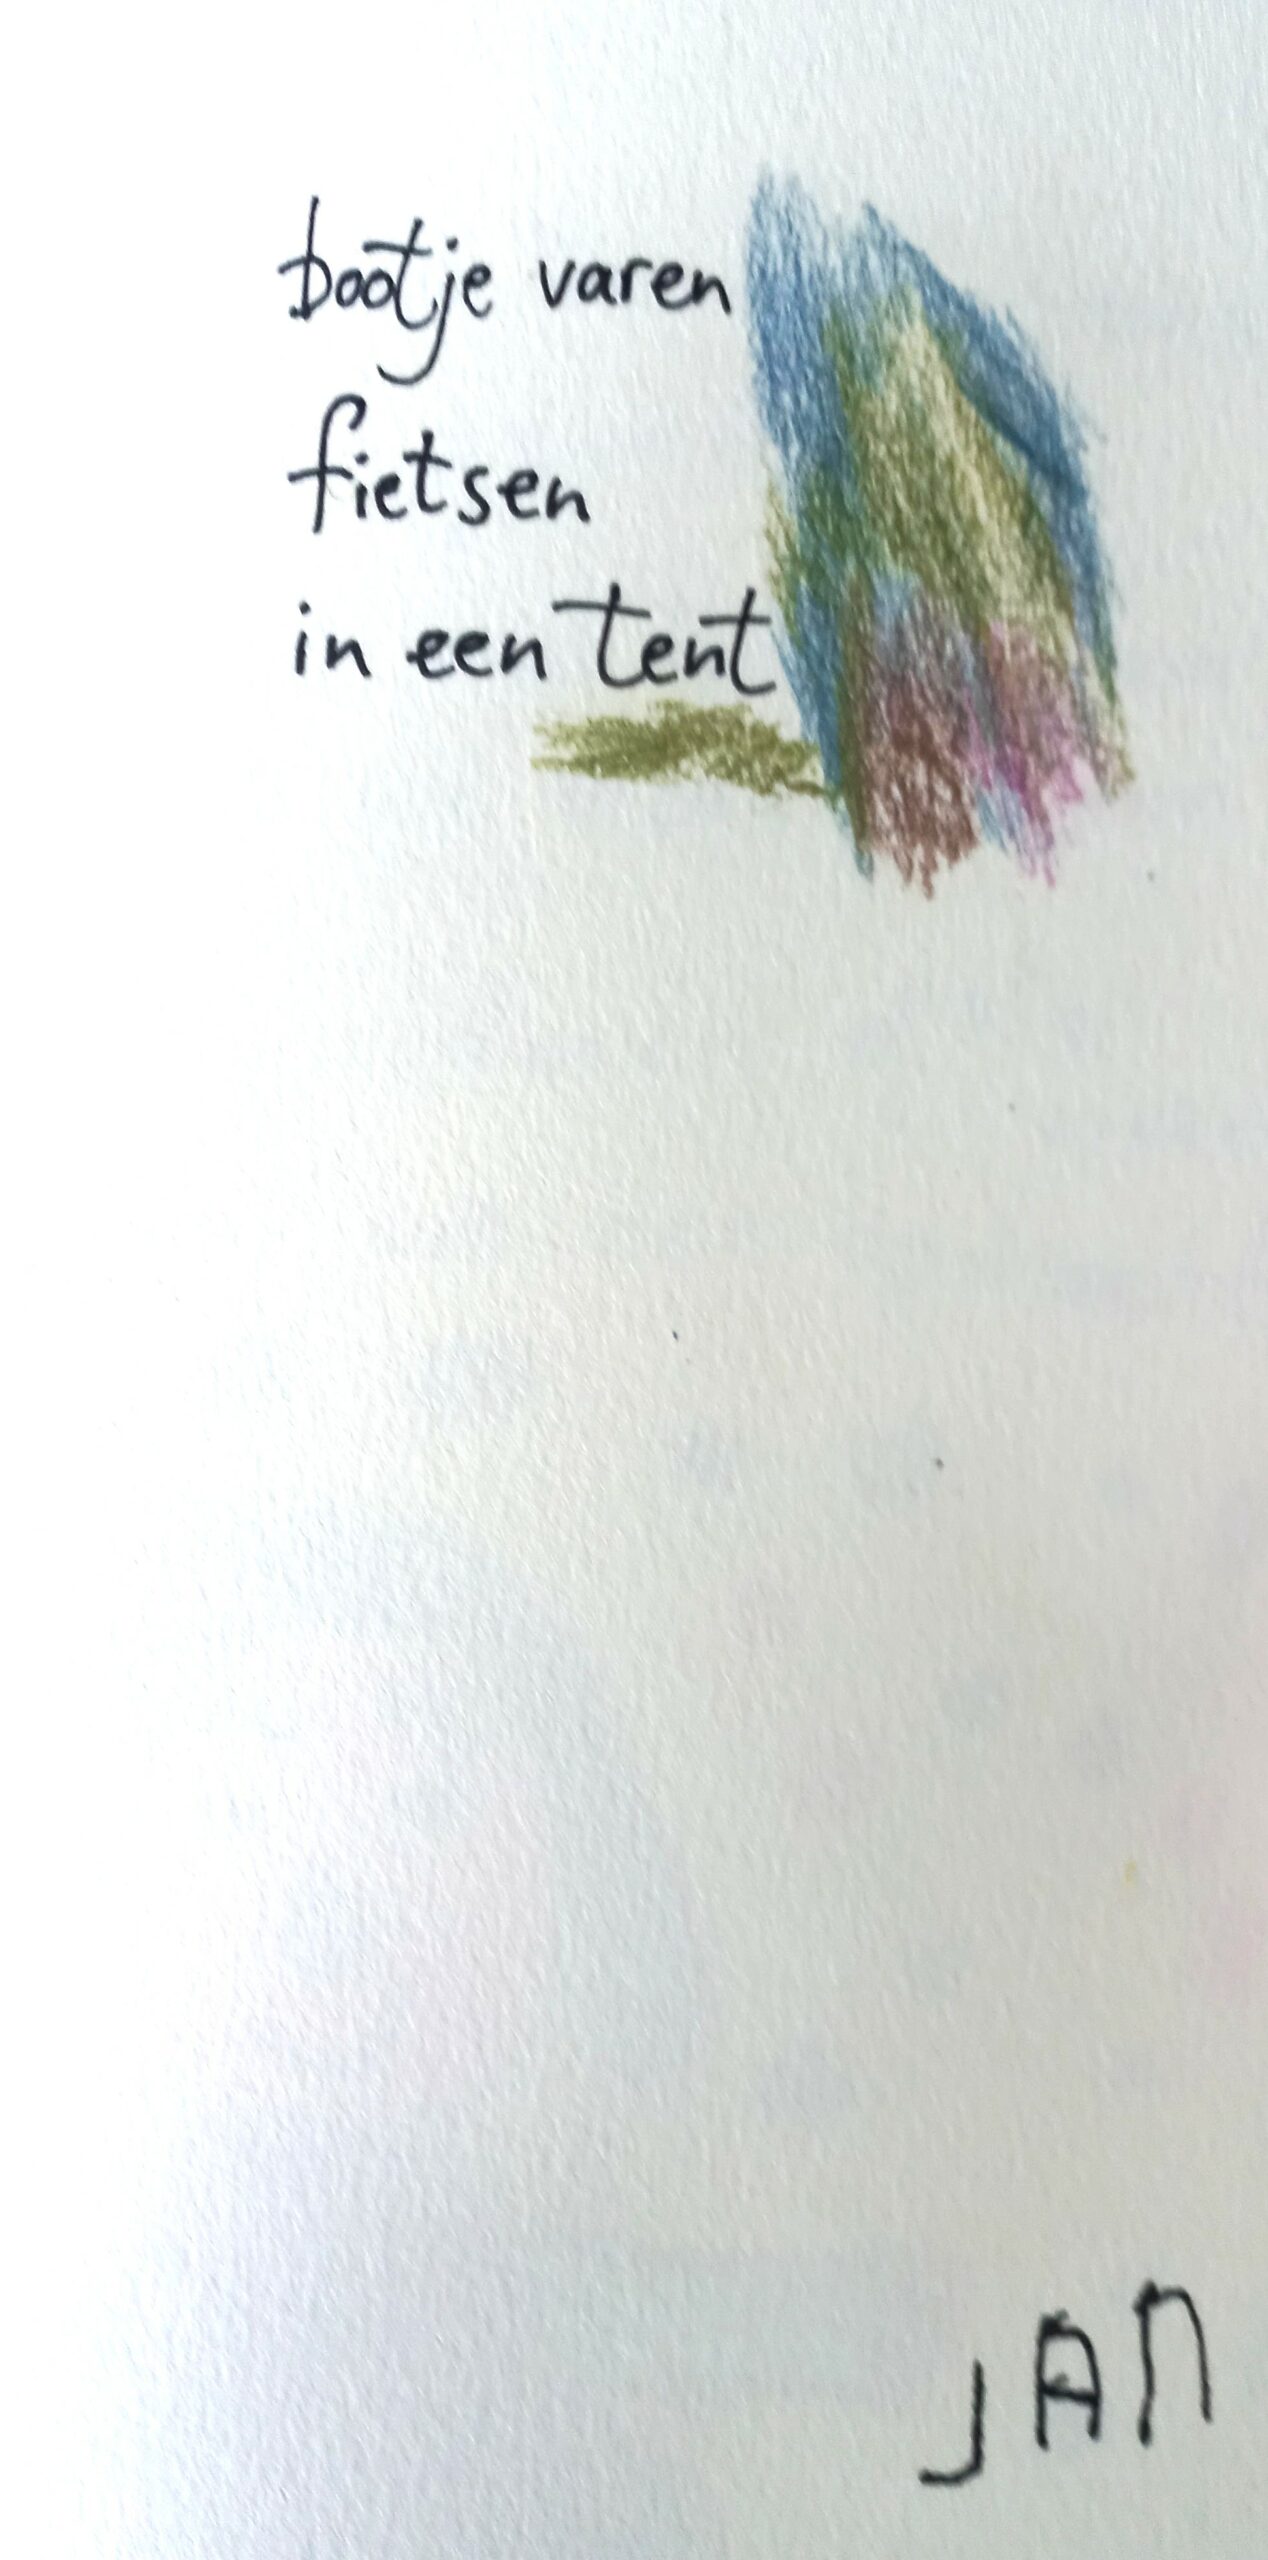 bootje varen
fietsen
in een tent
JAN